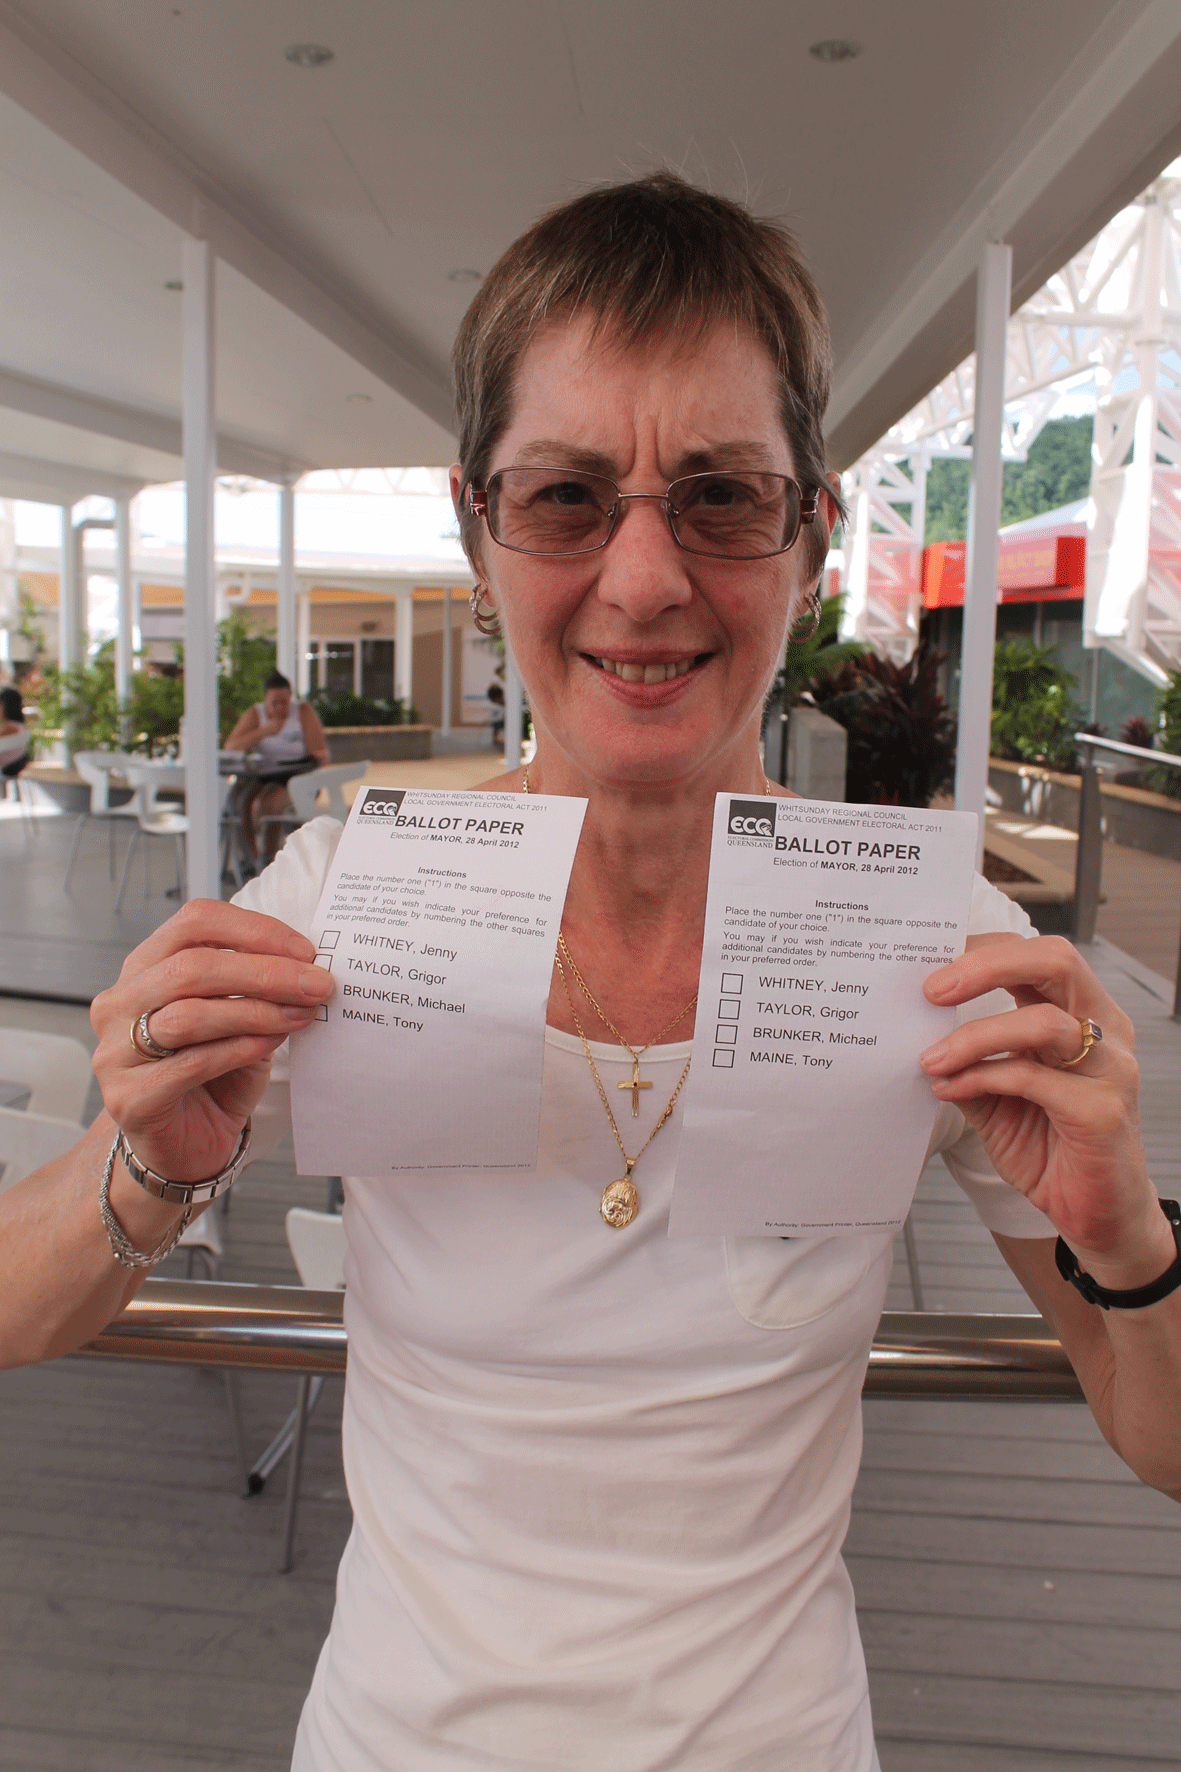 WHITSUNDAY REGIONAL COUNCIL
LOCAL GOVERNMENT ELECTORAL ACT 2011
ECQ
ELECTORAL COMMISSION
QUEENSLAND
BALLOT PAPER
Election of MAYOR, 28 April 2012
Instructions
Place the number one ("1") in the square opposite the
candidate of your choice.
You may if you wish indicate your preference for
additional candidates by numbering the other squares
in your preferred order.
WHITNEY, Jenny
TAYLOR, Grigor
BRUNKER, Michael
MAINE, Tony
By Authority: Government Printer, Queensland 2012
WHITSUNDAY REGIONAL COUNCIL
LOCAL GOVERNMENT ELECTORAL ACT 2011
ECQ
ELECTORAL COMMISSION
QUEENSLAND
BALLOT PAPER
Election of MAYOR, 28 April 2012
Instructions
Place the number one ("1") in the square opposite the
candidate of your choice.
You may if you wish indicate your preference for
additional candidates by numbering the other squares
in your preferred order.
WHITNEY, Jenny
TAYLOR, Grigor
BRUNKER, Michael
MAINE, Tony
By Authority: Government Printer, Queensland 2012